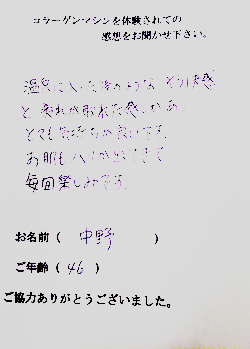 コラーゲンマシンを体験されての
感想をお聞かせ下さい。
温泉に入った後のような そう快感
と 疲れが取れた感じがあり
とても気持ちが良いです。
お肌もハリが出てきて
毎回楽しみです。
お名前（ 中野 ）
ご年齢（ 46 ）
ご協力ありがとうございました。